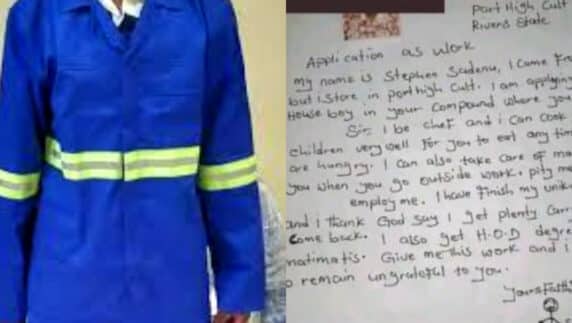 Port High Cult
Rivers State
Application as work
my name is Stephen Scadenu, I came Fr
but i store in port high Cult. I am applying
House boy in your Compound where you
Sir I be chef and i Can Cook
children very well For you to eat any tim
are hungry. I can also take care of ma
you when you go outside work. pity me
employ me. I have Finish my
and i thank God say I get plenty Carr
Come back. I also get H.O.D degre
matimatis. Give me this work and i
o remain ungrateful to you.
Yours Faith